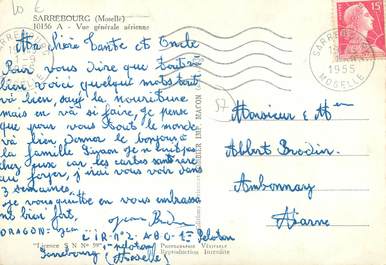 10 €
SARREBOURG (Moselle)
10156 A - Vue générale aérienne
SARREBOURG
MOSELLE
1955
15F
Ma Chère Tante et Oncle
Pour vous dire que tout va
bien voici quelque mots tout
va bien, sauf la nourriture
mais on va si faire, je pense
que pour vous tout le monde
va bien. Donner le bonjour à
la famille
chez eux car les cartes sont rare
au foyer, j'irai vous voir dans
3 semaines.
je vous quitte en vous embrassant
bien fort.
Jean
DRAGON
Peloton
Sarrebourg (Moselle)
"Licence S N N° 59"
PHOTOGRAPHIE VÉRITABLE
Reproduction Interdite
57
Monsieur & Mme
Albert Brodin
Ambonnay
Marne